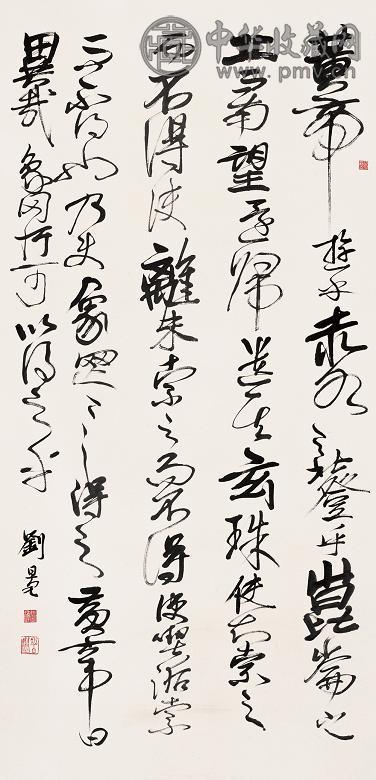 中华收藏网
www.pmv.cn
黃帝游乎赤水之北登乎崑崙之
丘而南望還歸遺其玄珠使知索之
而不得使離朱索之而不得使喫詬索
之而不得也乃使象罔〻〻得之黃帝曰
異哉象罔乃可以得之乎
劉